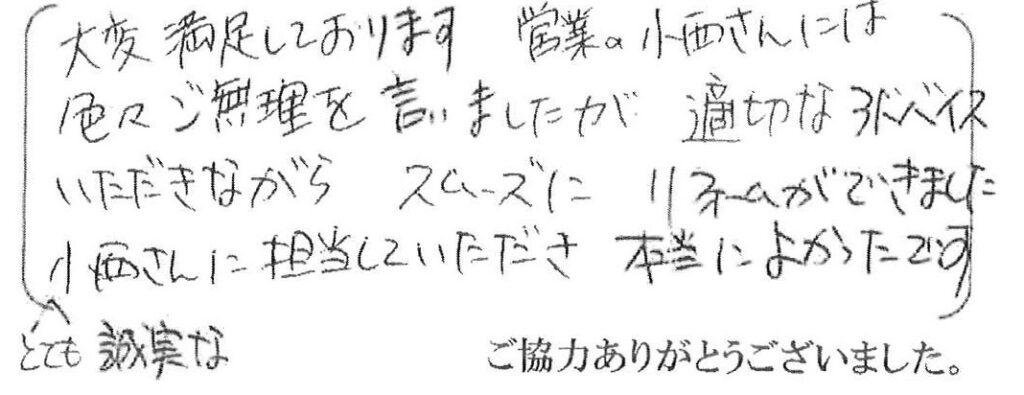 大変満足しております 営業の小西さんには
色々ご無理を言いましたが 適切なアドバイス
いただきながら スムーズに リフォームができました
小西さんに担当していただき 本当によかったです
とても誠実な
ご協力ありがとうございました。